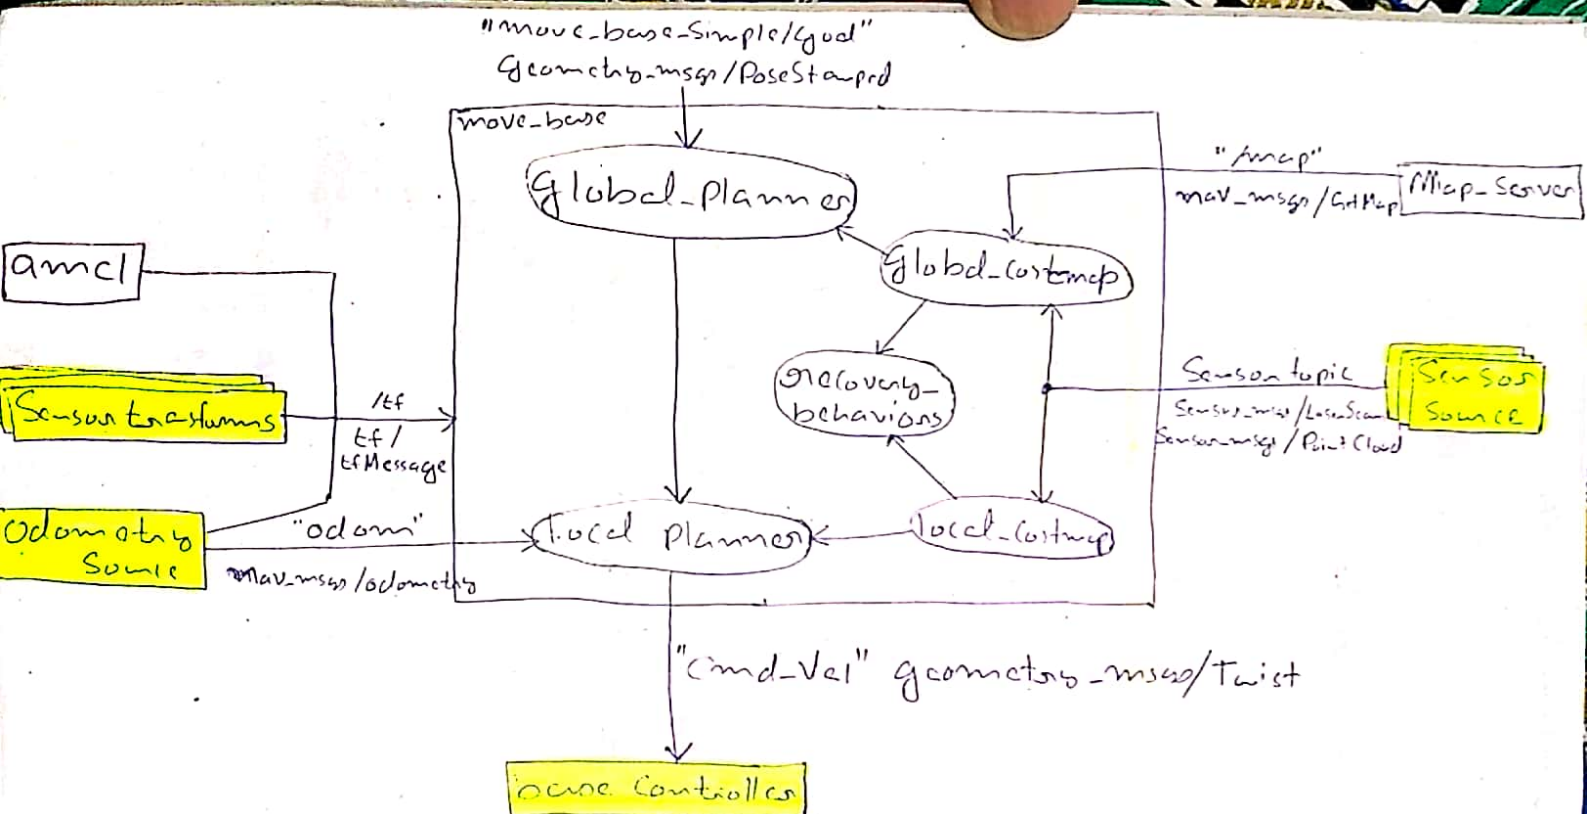 "move_base_simple/goal"
geometry_msgs/PoseStamped
move_base
global_planner
"/map"
nav_msgs/GetMap
Map_Server
amcl
global_costmap
recovery_
behaviors
Sensor topic
sensor_msgs/LaserScan
Sensor_msgs/PointCloud
Sensor
Source
Sensor transforms
/tf
tf/
tfMessage
Odometry
Source
"odom"
nav_msgs/odometry
local planner
local_costmap
"cmd_vel" geometry_msgs/Twist
base controller